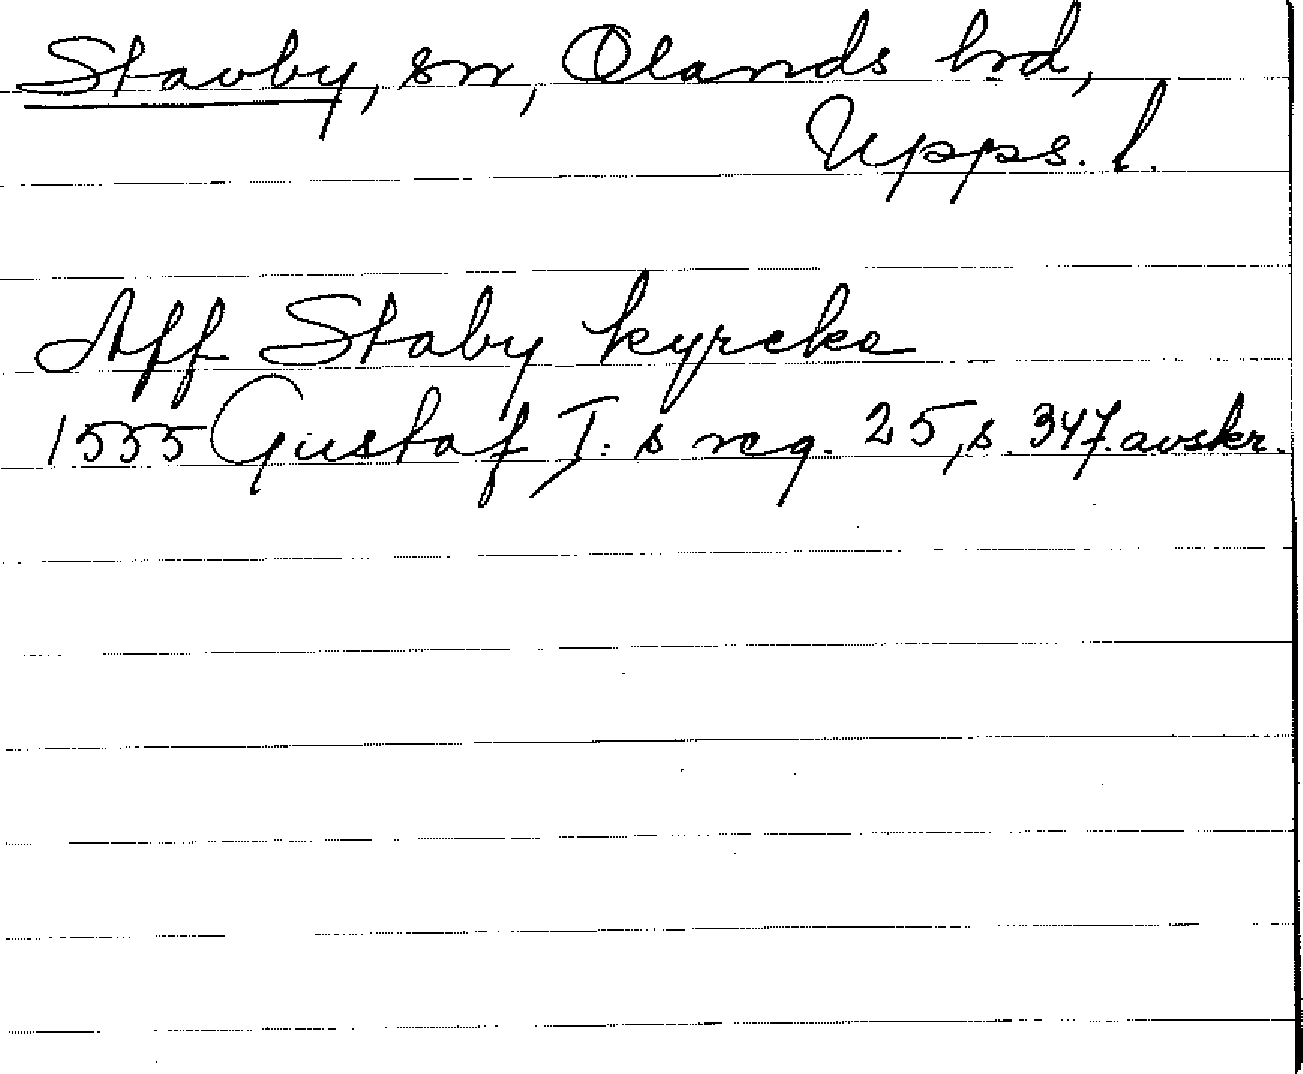 Stavby, sn, Olands hrd,
Upps. l.
Aff Staby kyrcke
1555 Gustaf I: s reg. 25, s. 347. avskr.